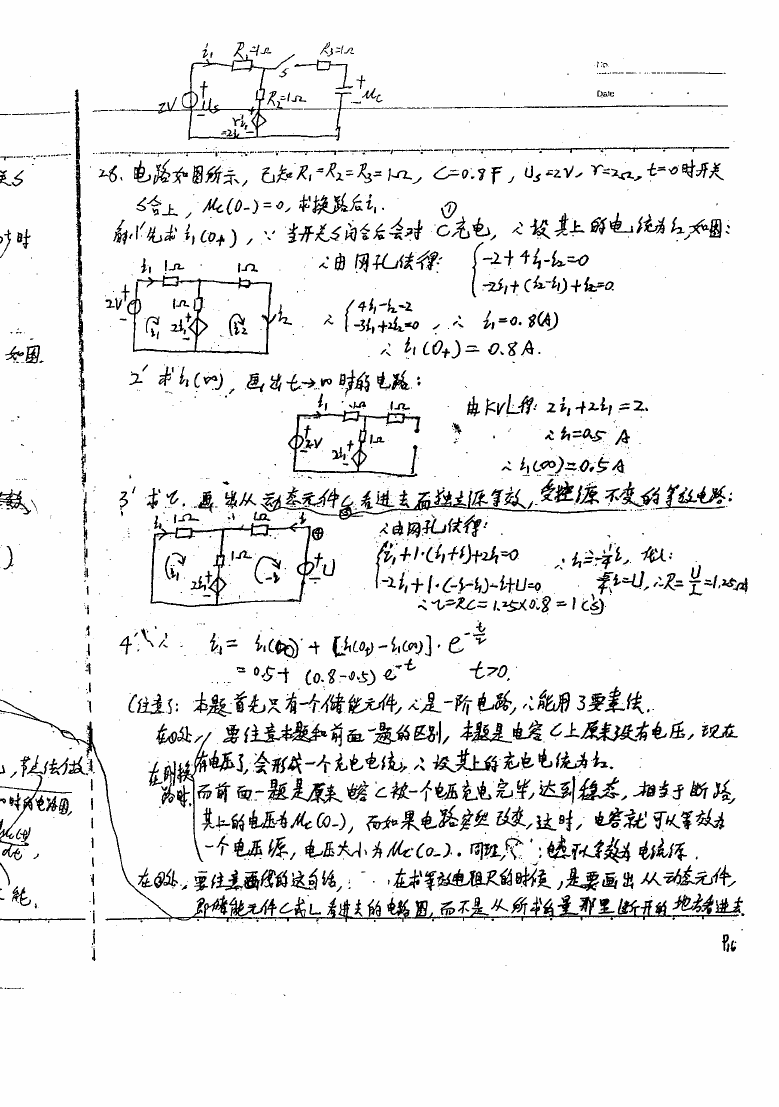 i₁ R₁=1Ω S R₃=1Ω
2V Us R₂=1Ω Uc
ri₁
=2i₁
No.
Date
28. 电路如图所示, 已知R₁=R₂=R₃=1Ω, C=0.8F, Us=2V, r=2Ω, t=0时开关
S合上, Uc(0-)=0, 求换路后i₁.
①
解: 1' 先求i₁(0+), ∵ 当开关S闭合后会对C充电, ∴设其上的电流为i₂, 如图:
i₁ 1Ω 1Ω
2V 1Ω 2i₁ i₁ i₂ i₂
∴由网孔法得: { -2+4i₁-i₂=0
-2i₁+(i₂-i₁)+i₂=0.
∴ { 4i₁-i₂=2
-3i₁+2i₂=0 , ∴ i₁=0.8(A)
∴ i₁(0+)=0.8A.
2' 求i₁(∞), 画出t→∞时的电路:
i₁ 1Ω 1Ω
2V 1Ω 2i₁
由KVL得: 2i₁+2i₁=2.
∴ i₁=0.5 A
∴ i₁(∞)=0.5A
3' 求τ. 画出从动态元件C看进去而独立源等效, 受控源不变的等效电路:
②
i₁ 1Ω 1Ω i
1Ω 2i₁ i₁ -i U
∴由网孔法得:
{ i₁+1·(i₁+i)+2i₁=0
-2i₁+1·(-i-i₁)-i+U=0
∴ i₁=-¼i, 代入:
i=U, ∴R=U/I=1.25Ω
∴ τ=RC=1.25×0.8=1(s)
4' ∴ i₁= i₁(∞)+[i₁(0+)-i₁(∞)]·e^(-t/τ)
=0.5+(0.8-0.5)e^(-t) t>0.
(注意): 本题首先只有一个储能元件, ∴是一阶电路, ∴能用3要素法.
在①处, 要注意本题和前面一题的区别, 本题是电容C上原来没有电压, 现在
在刚换路时
有电压了, 会形成一个充电电流, ∴设其上的充电电流为i₂.
而前面一题是原来电容C被一个电压充电完毕, 达到稳态, 相当于断路,
其上的电压为Uc(0-), 而如果电路突然改变, 这时, 电容就可以等效为
一个电压源, 电压大小为Uc(0-). 同理, 电感可以等效为电流源.
在②处, 要注意画线的这句话, 在求等效电阻R的时候, 是要画出从动态元件,
即储能元件C或L看进去的电路图, 而不是从所求的量那里断开的地方看进去.
P16
时
如图.
, 节点法
时的电路图,
dt ,
能.